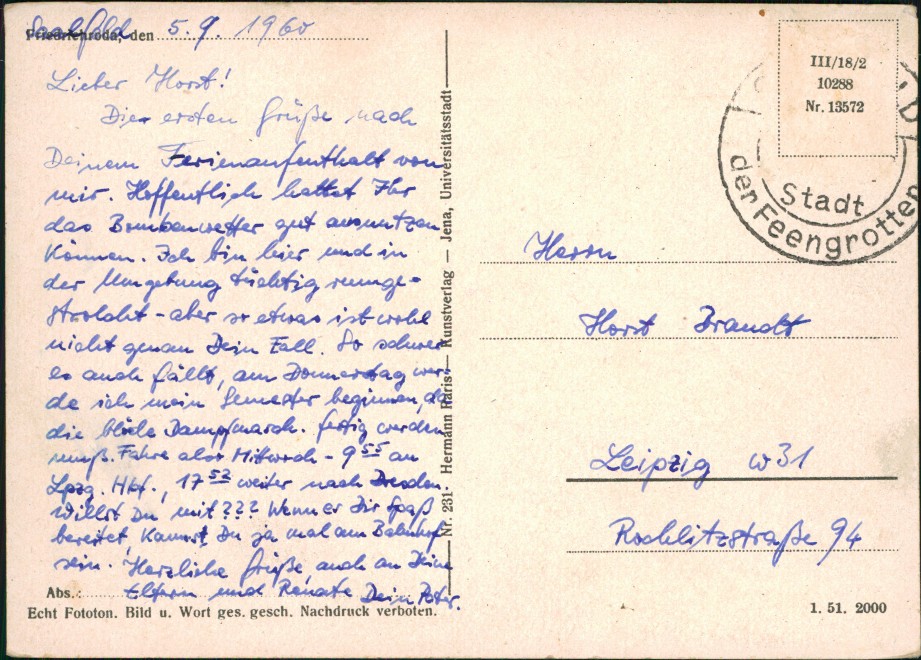 Saalfeld
Friedrichroda, den 5. 9. 1960
Lieber Horst!
Die ersten Grüße nach
Deinem Ferienaufenthalt von
mir. Hoffentlich hattet Ihr
das Bombenwetter gut ausnutzen
können. Ich bin hier und in
der Umgebung tüchtig rumge-
strolcht - aber so etwas ist wohl
nicht genau Dein Fall. So schwer
es auch fällt, am Donnerstag wer-
de ich mein Semester beginnen, da
die blöde Dampfmasch. fertig werden
muß. Fahre also Mittwoch - 9 55 an
Lpzg. Hbf., 17 52 weiter nach Dresden.
Willst Du mit??? Wenn er Dir Spaß
bereitet kannst Du ja mal am Bahnhof
sein. Herzliche Grüße auch an Deine
Abs.: Eltern und Renate Dein Peter.
Echt Fototon. Bild u. Wort ges. gesch. Nachdruck verboten.
Nr. 231 Hermann Paris Kunstverlag — Jena, Universitätsstadt
III/18/2
10288
Nr. 13572
Stadt
der Feengrotten
Herrn
Horst Brandt
Leipzig W31
Rochlitzstraße 94
1. 51. 2000